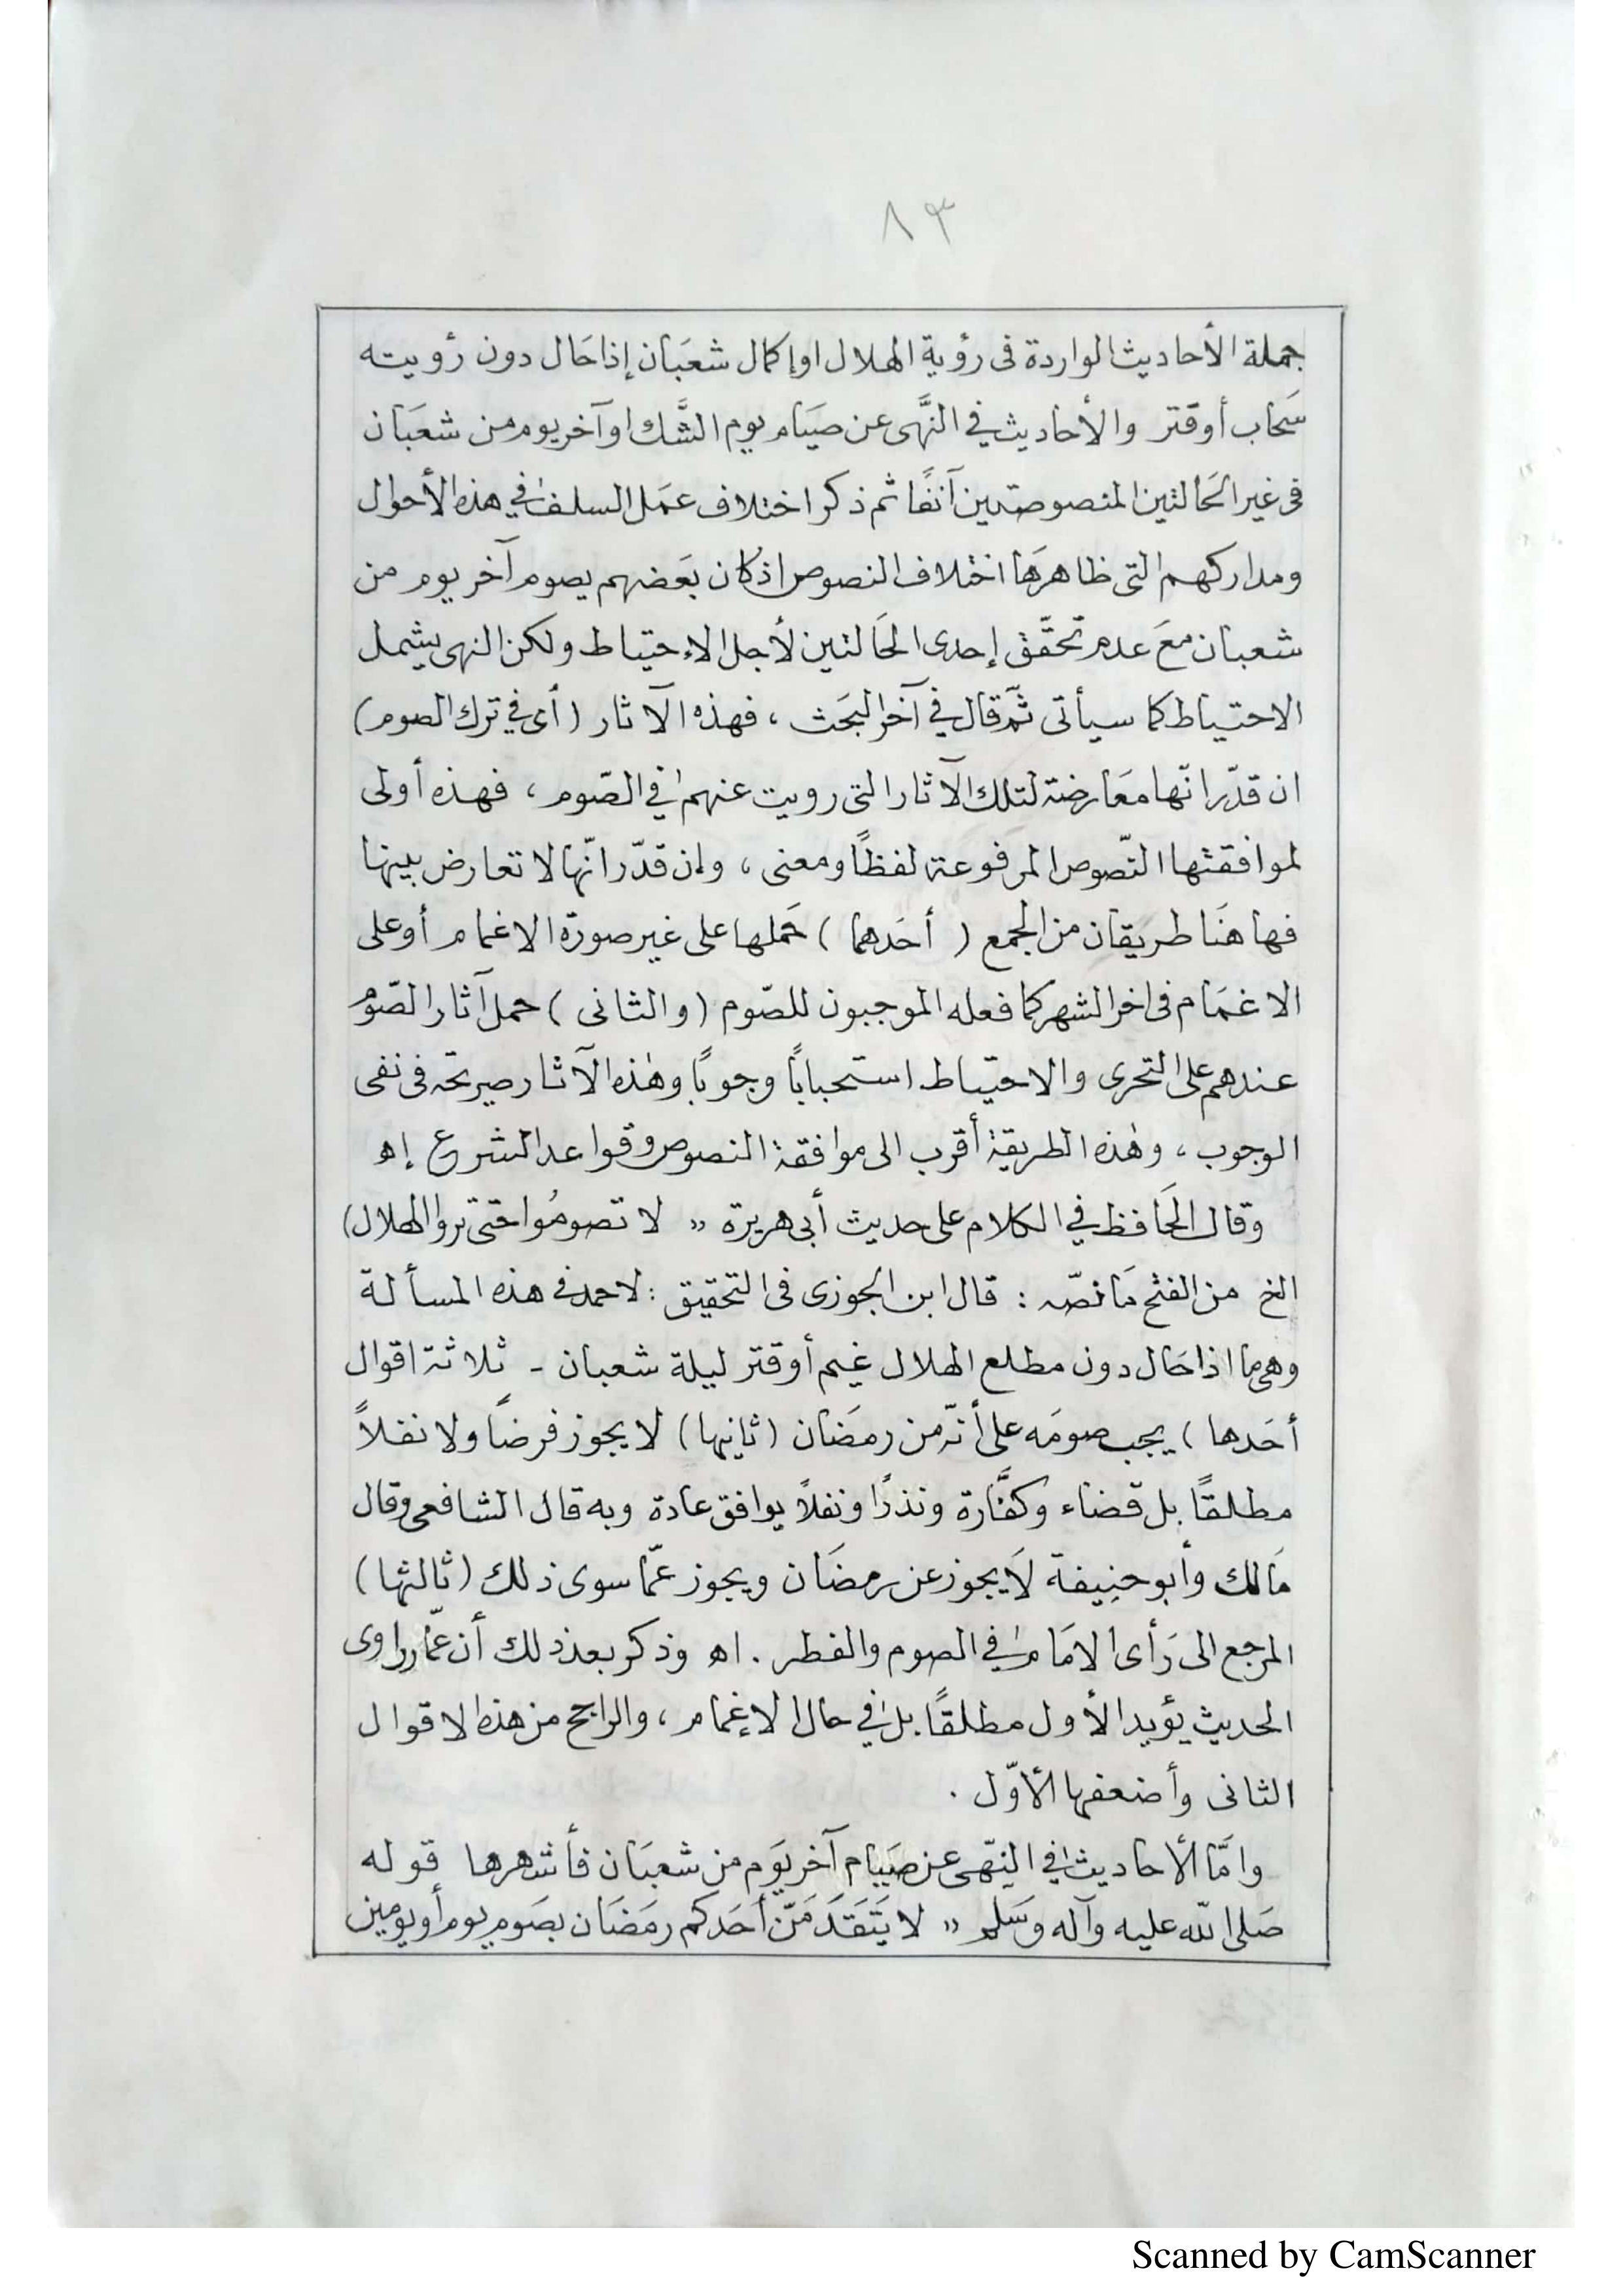 ٨٣
جملة الأحاديث الواردة فى رؤية الهلال اوإكمال شعبَان إذا حَال دون رؤيته
سَحاب أوقتر والأحاديث في النَّهى عن صيَام يوم الشَّك اوآخريوم من شعبَان
فى غير الحَالتين المنصوصتين آنفًا ثم ذكر اختلاف عمَل السلف في هذه الأحوال
ومداركهم التى ظاهرهَا اختلاف النصوص اذكان بعَضهم يصوم آخر يوم من
شعبان معَ عدم تحقّق إحدى الحَالتين لأجل الإحتياط ولكن النهى يشمل
الاحتياط كما سيأتى ثمّ قال في آخر البحَث ، فهذه الآثار (أى في ترك الصوم)
ان قدّر انّها معَارضة لتلك الآثار التى رويت عنهم في الصّوم ، فهذه أولى
لموافقتها النّصوص المرفوعة لفظًا ومعنى ، وإن قدّر انّها لا تعارض بينها
فها هنَا طريقان من الجمع ( أحَدهما ) حَملها على غير صورة الاغمام أوعلى
الاغمَام فى اخر الشهر كما فعله الموجبون للصّوم (والثانى ) حمل آثار الصّوم
عندهم على التحرى والاحتياط استحباباً وجوبًا وهٰذه الآثار صريحة فى نفى
الوجوب ، وهٰذه الطريقة أقرب الى موافقة النصوص وقواعد الشرع إھ
وقال الحَافظ في الكلام على حديث أبى هريرة „ لا تصومُوا حتى تروا الهلال)
الخ من الفتح مَا نصّه : قال ابن الجوزى فى التحقيق : لاحمد فى هذه المسألة
وهى ما اذا حَال دون مطلع الهلال غيم أوقتر ليلة شعبان - ثلاثة اقوال
أحَدها ) يجب صومَه على أنّه من رمضَان (ثانيها) لا يجوز فرضًا ولا نفلاً
مطلقًا بل قضاء وكفَّارة ونذرًا ونفلاً يوافق عادة وبه قال الشافعى وقال
مَالك وأبوحنِيفة لَا يجوز عن رمضَان ويجوز عمّا سوى ذلك (ثالثها)
المرجع الى رَأى الامَام في الصوم والفطر . اھ وذكر بعد ذلك أن عمّار راوى
الحديث يؤيد الأول مطلقًا بل في حال الإغمام ، والراجح من هذه الاقوال
الثانى وأضعفها الأوّل .
وامَّا الأحاديث في النّهى عن صيَام آخر يوَم من شعبَان فأشهرها قوله
صَلى اللّه عليه وآله وسَلم „ لا يَتَقَدَمَنّ أحَدكم رمَضَان بصَوم يوم أويومين
Scanned by CamScanner